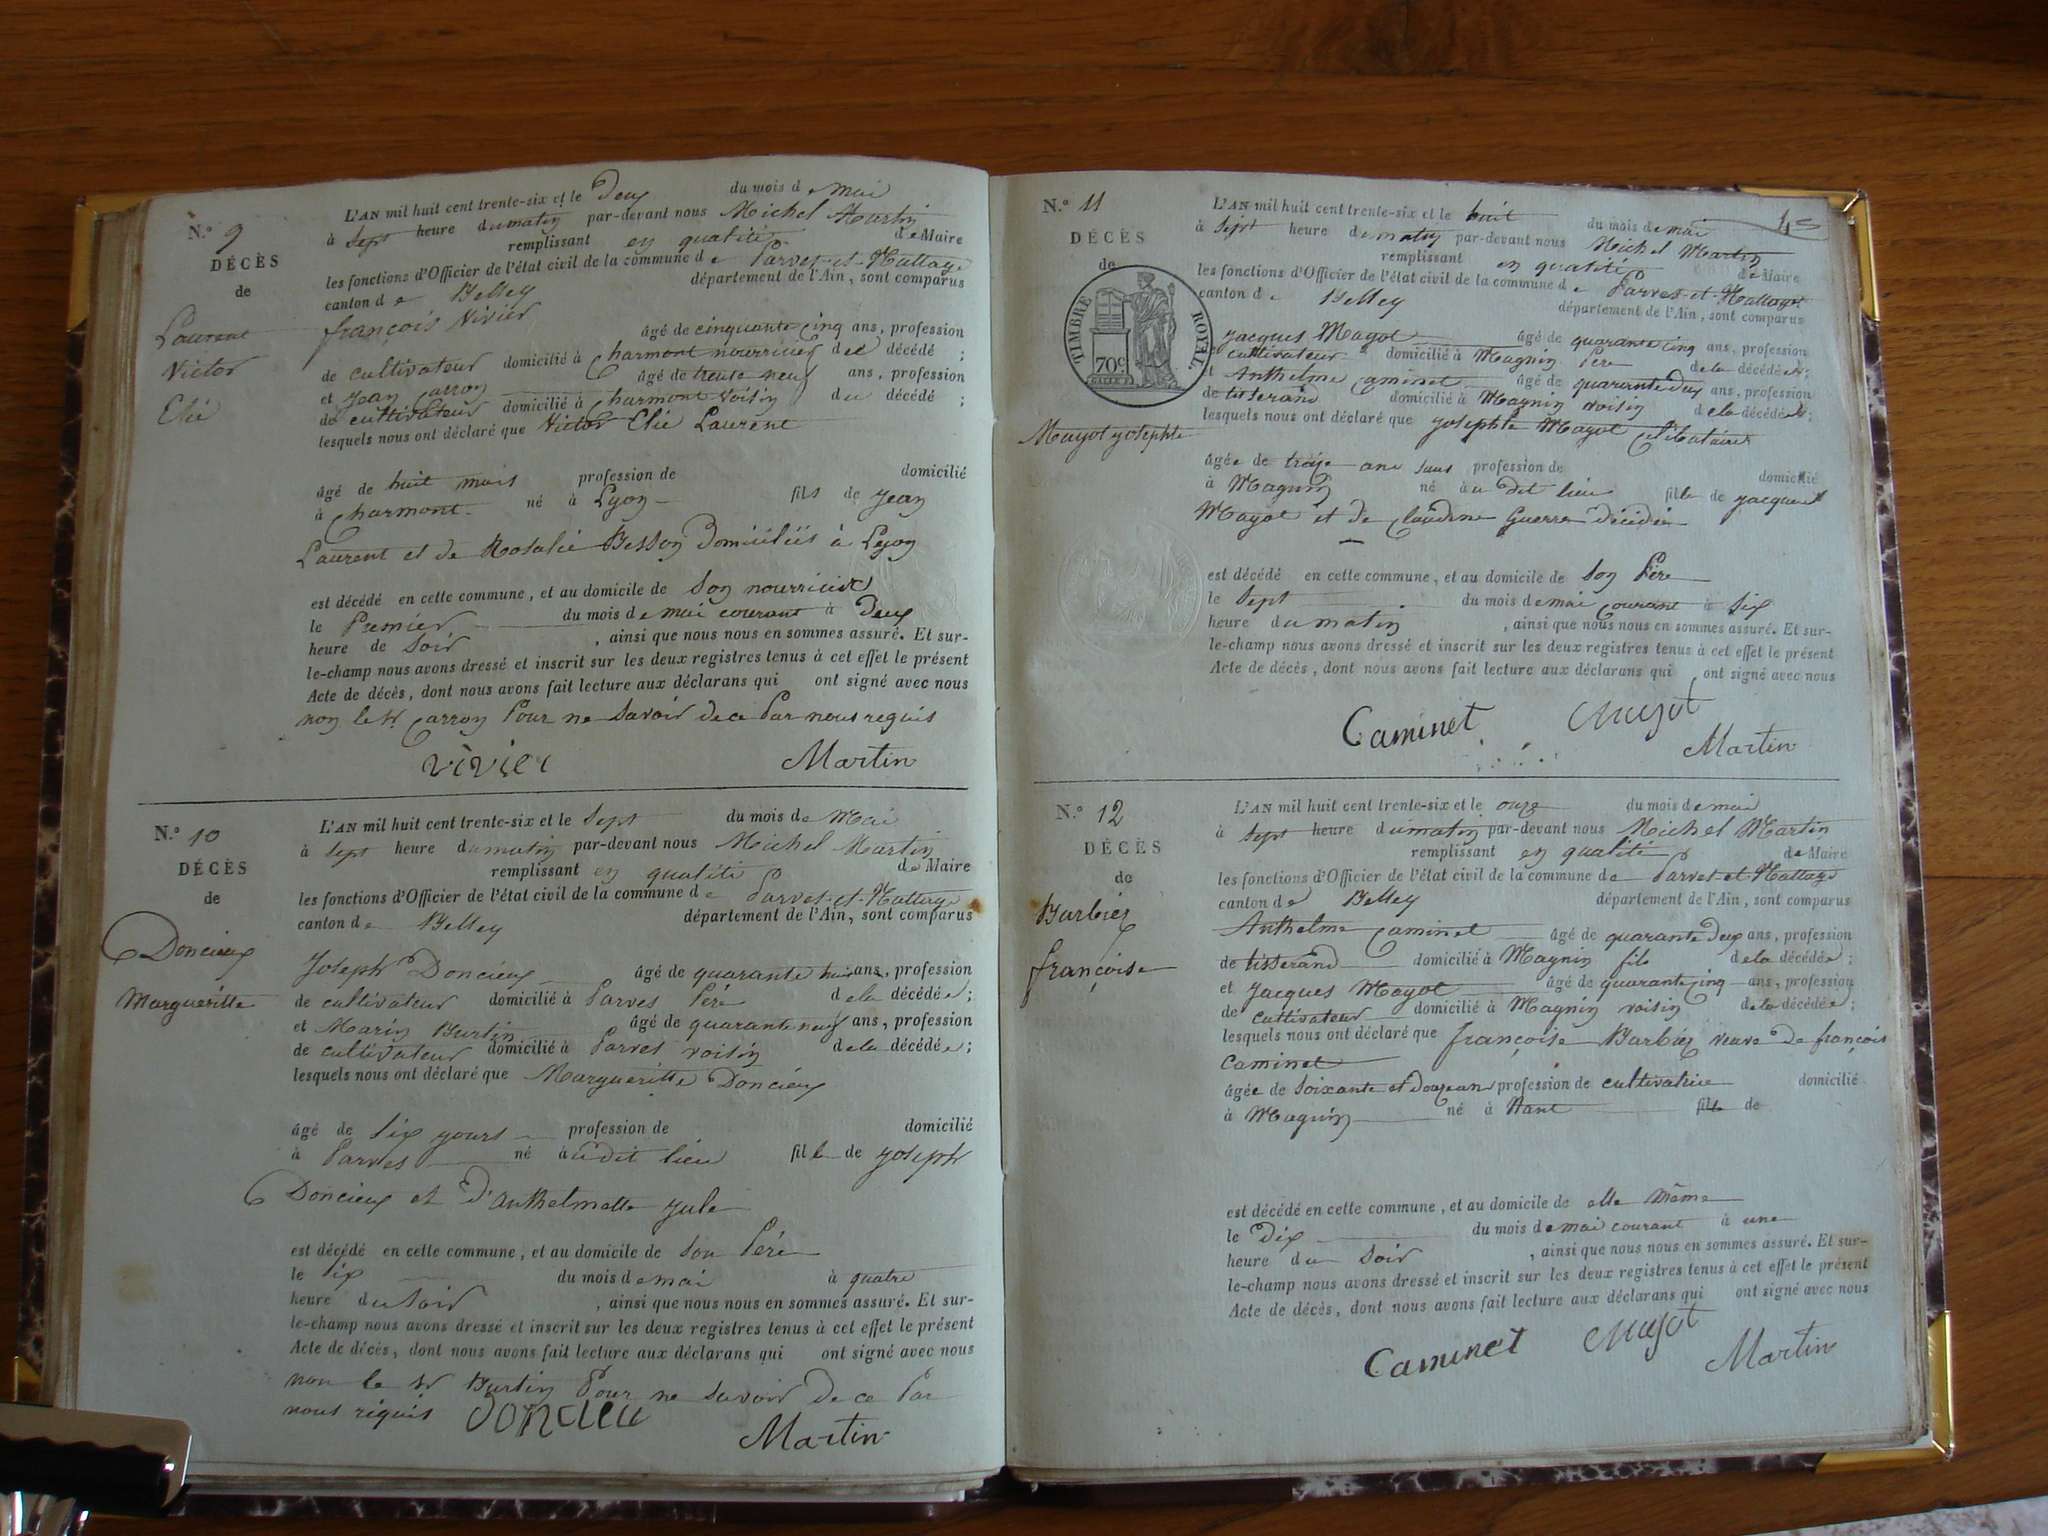 N.º 9
DÉCÈS
de
Laurent
Victor
Elie
L'AN mil huit cent trente-six et le Deux du mois de mai
à sept heure du matin par-devant nous Michel Martin
remplissant en qualité de Maire
les fonctions d'Officier de l'état civil de la commune de Parves-et-Nattage
canton de Belley département de l'Ain, sont comparus
françois Vivier âgé de cinquante cinq ans, profession
de cultivateur domicilié à Charmont nourricier du décédé ;
et jean Carron âgé de trente neuf ans, profession
de cultivateur domicilié à Charmont voisin du décédé ;
lesquels nous ont déclaré que Victor Elie Laurent
âgé de huit mois profession de domicilié
à Charmont né à Lyon fils de jean
Laurent et de Rosalie Besson Domiciliés à Lyon
est décédé en cette commune, et au domicile de son nourricier
le Premier du mois de mai courant à Deux
heure de soir , ainsi que nous nous en sommes assuré. Et sur-
le-champ nous avons dressé et inscrit sur les deux registres tenus à cet effet le présent
Acte de décès, dont nous avons fait lecture aux déclarans qui ont signé avec nous
non le Sr Carron Pour ne savoir de ce Par nous requis
vivier Martin
N.º 10
DÉCÈS
de
Doncieux
Margueritte
L'AN mil huit cent trente-six et le sept du mois de Mai
à sept heure du matin par-devant nous Michel Martin
remplissant en qualité de Maire
les fonctions d'Officier de l'état civil de la commune de Parves-et-Nattage
canton de Belley département de l'Ain, sont comparus
joseph Doncieux âgé de quarante huit ans, profession
de cultivateur domicilié à Parves Péré de la décédée ;
et Marin Burtin âgé de quarante neuf ans, profession
de cultivateur domicilié à Parves voisin de la décédée ;
lesquels nous ont déclaré que Margueritte Doncieux
âgé de six yours profession de domicilié
à Parves né à u dit lieu fille de joseph
Doncieux et d'anthelmette jule
est décédé en cette commune, et au domicile de son Péré
le six du mois de mai à quatre
heure du soir , ainsi que nous nous en sommes assuré. Et sur-
le-champ nous avons dressé et inscrit sur les deux registres tenus à cet effet le présent
Acte de décès, dont nous avons fait lecture aux déclarans qui ont signé avec nous
non le Sr Burtin Pour ne savoir de ce Par
nous réquis doncieu Martin
N.º 11
DÉCÈS
de
TIMBRE ROYAL
70c.
Mayot josephte
L'AN mil huit cent trente-six et le huit du mois de mai
à sept heure du matin par-devant nous Michel Martin
remplissant en qualité de Maire
les fonctions d'Officier de l'état civil de la commune de Parves-et-Nattages
canton de Belley département de l'Ain, sont comparus
jacques Mayot âgé de quarante cinq ans, profession
cultivateur domicilié à Magnin Père de la décédée ;
et Anthelme Caminet âgé de quarante deux ans, profession
de tisserand domicilié à Magnin voisin de la décédée ;
lesquels nous ont déclaré que josephte Mayot célibataire
âgée de treize ans sans profession de domicilié
à Magnin né à u dit lieu fille de jacques
Mayot et de Claudine Guerre décédée
est décédé en cette commune, et au domicile de son Père
le sept du mois de mai courant à six
heure du matin , ainsi que nous nous en sommes assuré. Et sur-
le-champ nous avons dressé et inscrit sur les deux registres tenus à cet effet le présent
Acte de décès, dont nous avons fait lecture aux déclarans qui ont signé avec nous
Caminet Mayot
Martin
N.º 12
DÉCÈS
de
Barbier
françoise
L'AN mil huit cent trente-six et le onze du mois de mai
à sept heure du matin par-devant nous Michel Martin
remplissant en qualité de Maire
les fonctions d'Officier de l'état civil de la commune de Parves-et-Nattage
canton de Belley département de l'Ain, sont comparus
Anthelme Caminet âgé de quarante deux ans, profession
de tisserand domicilié à Magnin fils de la décédée ;
et jacques Mayot âgé de quarante cinq ans, profession
de cultivateur domicilié à Magnin voisin de la décédée ;
lesquels nous ont déclaré que françoise Barbier veuve de françois
Caminet
âgée de soixante et douze ans profession de cultivatrice domicilié
à Magnin né à Nant fille de
est décédé en cette commune, et au domicile de elle même
le dix du mois de mai courant à une
heure du soir , ainsi que nous nous en sommes assuré. Et sur-
le-champ nous avons dressé et inscrit sur les deux registres tenus à cet effet le présent
Acte de décès, dont nous avons fait lecture aux déclarans qui ont signé avec nous
Caminet Mayot Martin